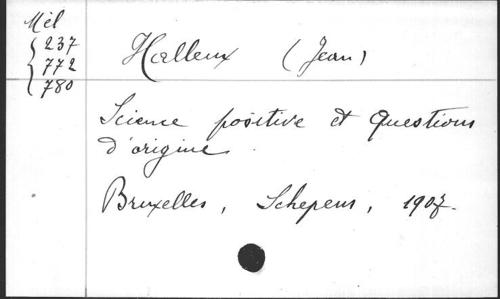 Mél
237
772
780
Halleux (Jean)
Science positive et Questions
d'origine.
Bruxelles, Schepens, 1907.